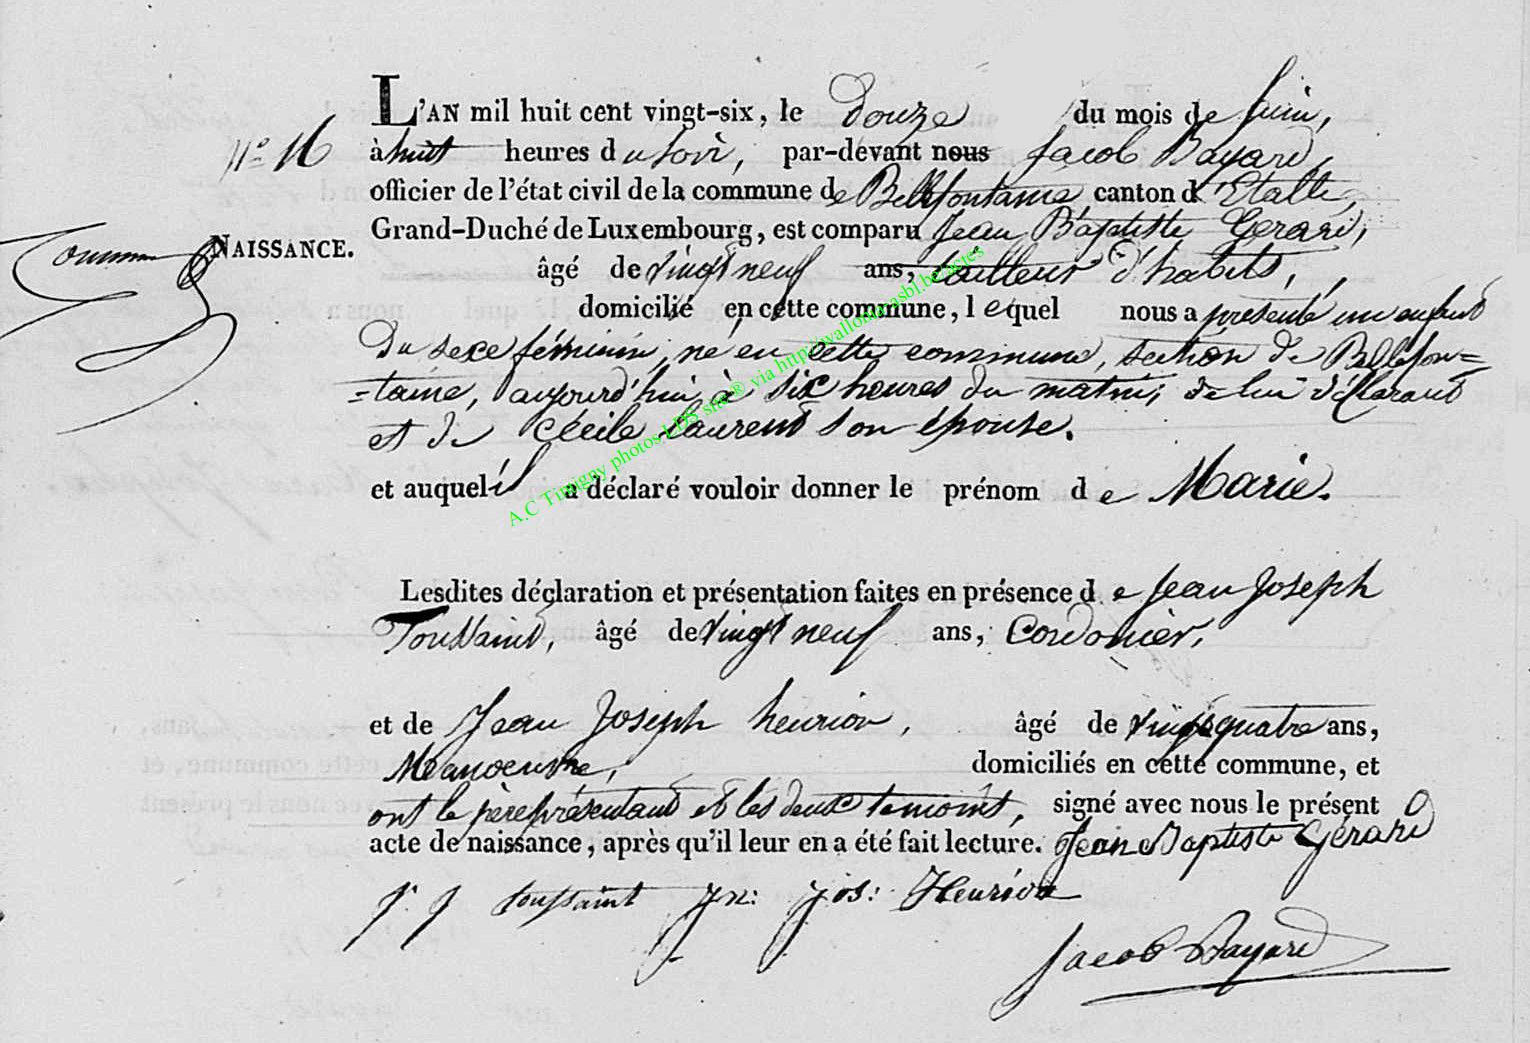 L'AN mil huit cent vingt-six, le Douze du mois de juin,
N° 16
à huit heures du soir, par-devant nous Jacob Bayard,
officier de l'état civil de la commune de Bellefontaine canton d'Etalle,
Grand-Duché de Luxembourg, est comparu Jean Baptiste Gerard,
NAISSANCE.
âgé de vingt neuf ans, tailleur d'habits,
domicilié en cette commune, lequel nous a présenté un enfant
du sexe féminin, né en cette commune, section de Bellefon=
=taine, aujourd'hui, à six heures du matin, de lui déclarant
et de Cécile Laurent son épouse.
et auquel il a déclaré vouloir donner le prénom de Marie.
A.C Tintigny photos LDS site® via http://wallonia.asbl.be/actes
Lesdites déclaration et présentation faites en présence de Jean Joseph
Toussaint, âgé de vingt neuf ans, Cordonier,
et de Jean Joseph henrion, âgé de vingt quatre ans,
Manoeuvre, domiciliés en cette commune, et
ont le père présentant et les deux temoins, signé avec nous le présent
acte de naissance, après qu'il leur en a été fait lecture. Jean Baptiste Gérard
J. J toussaint Jn: Jos: Henrion
Jacob Bayard